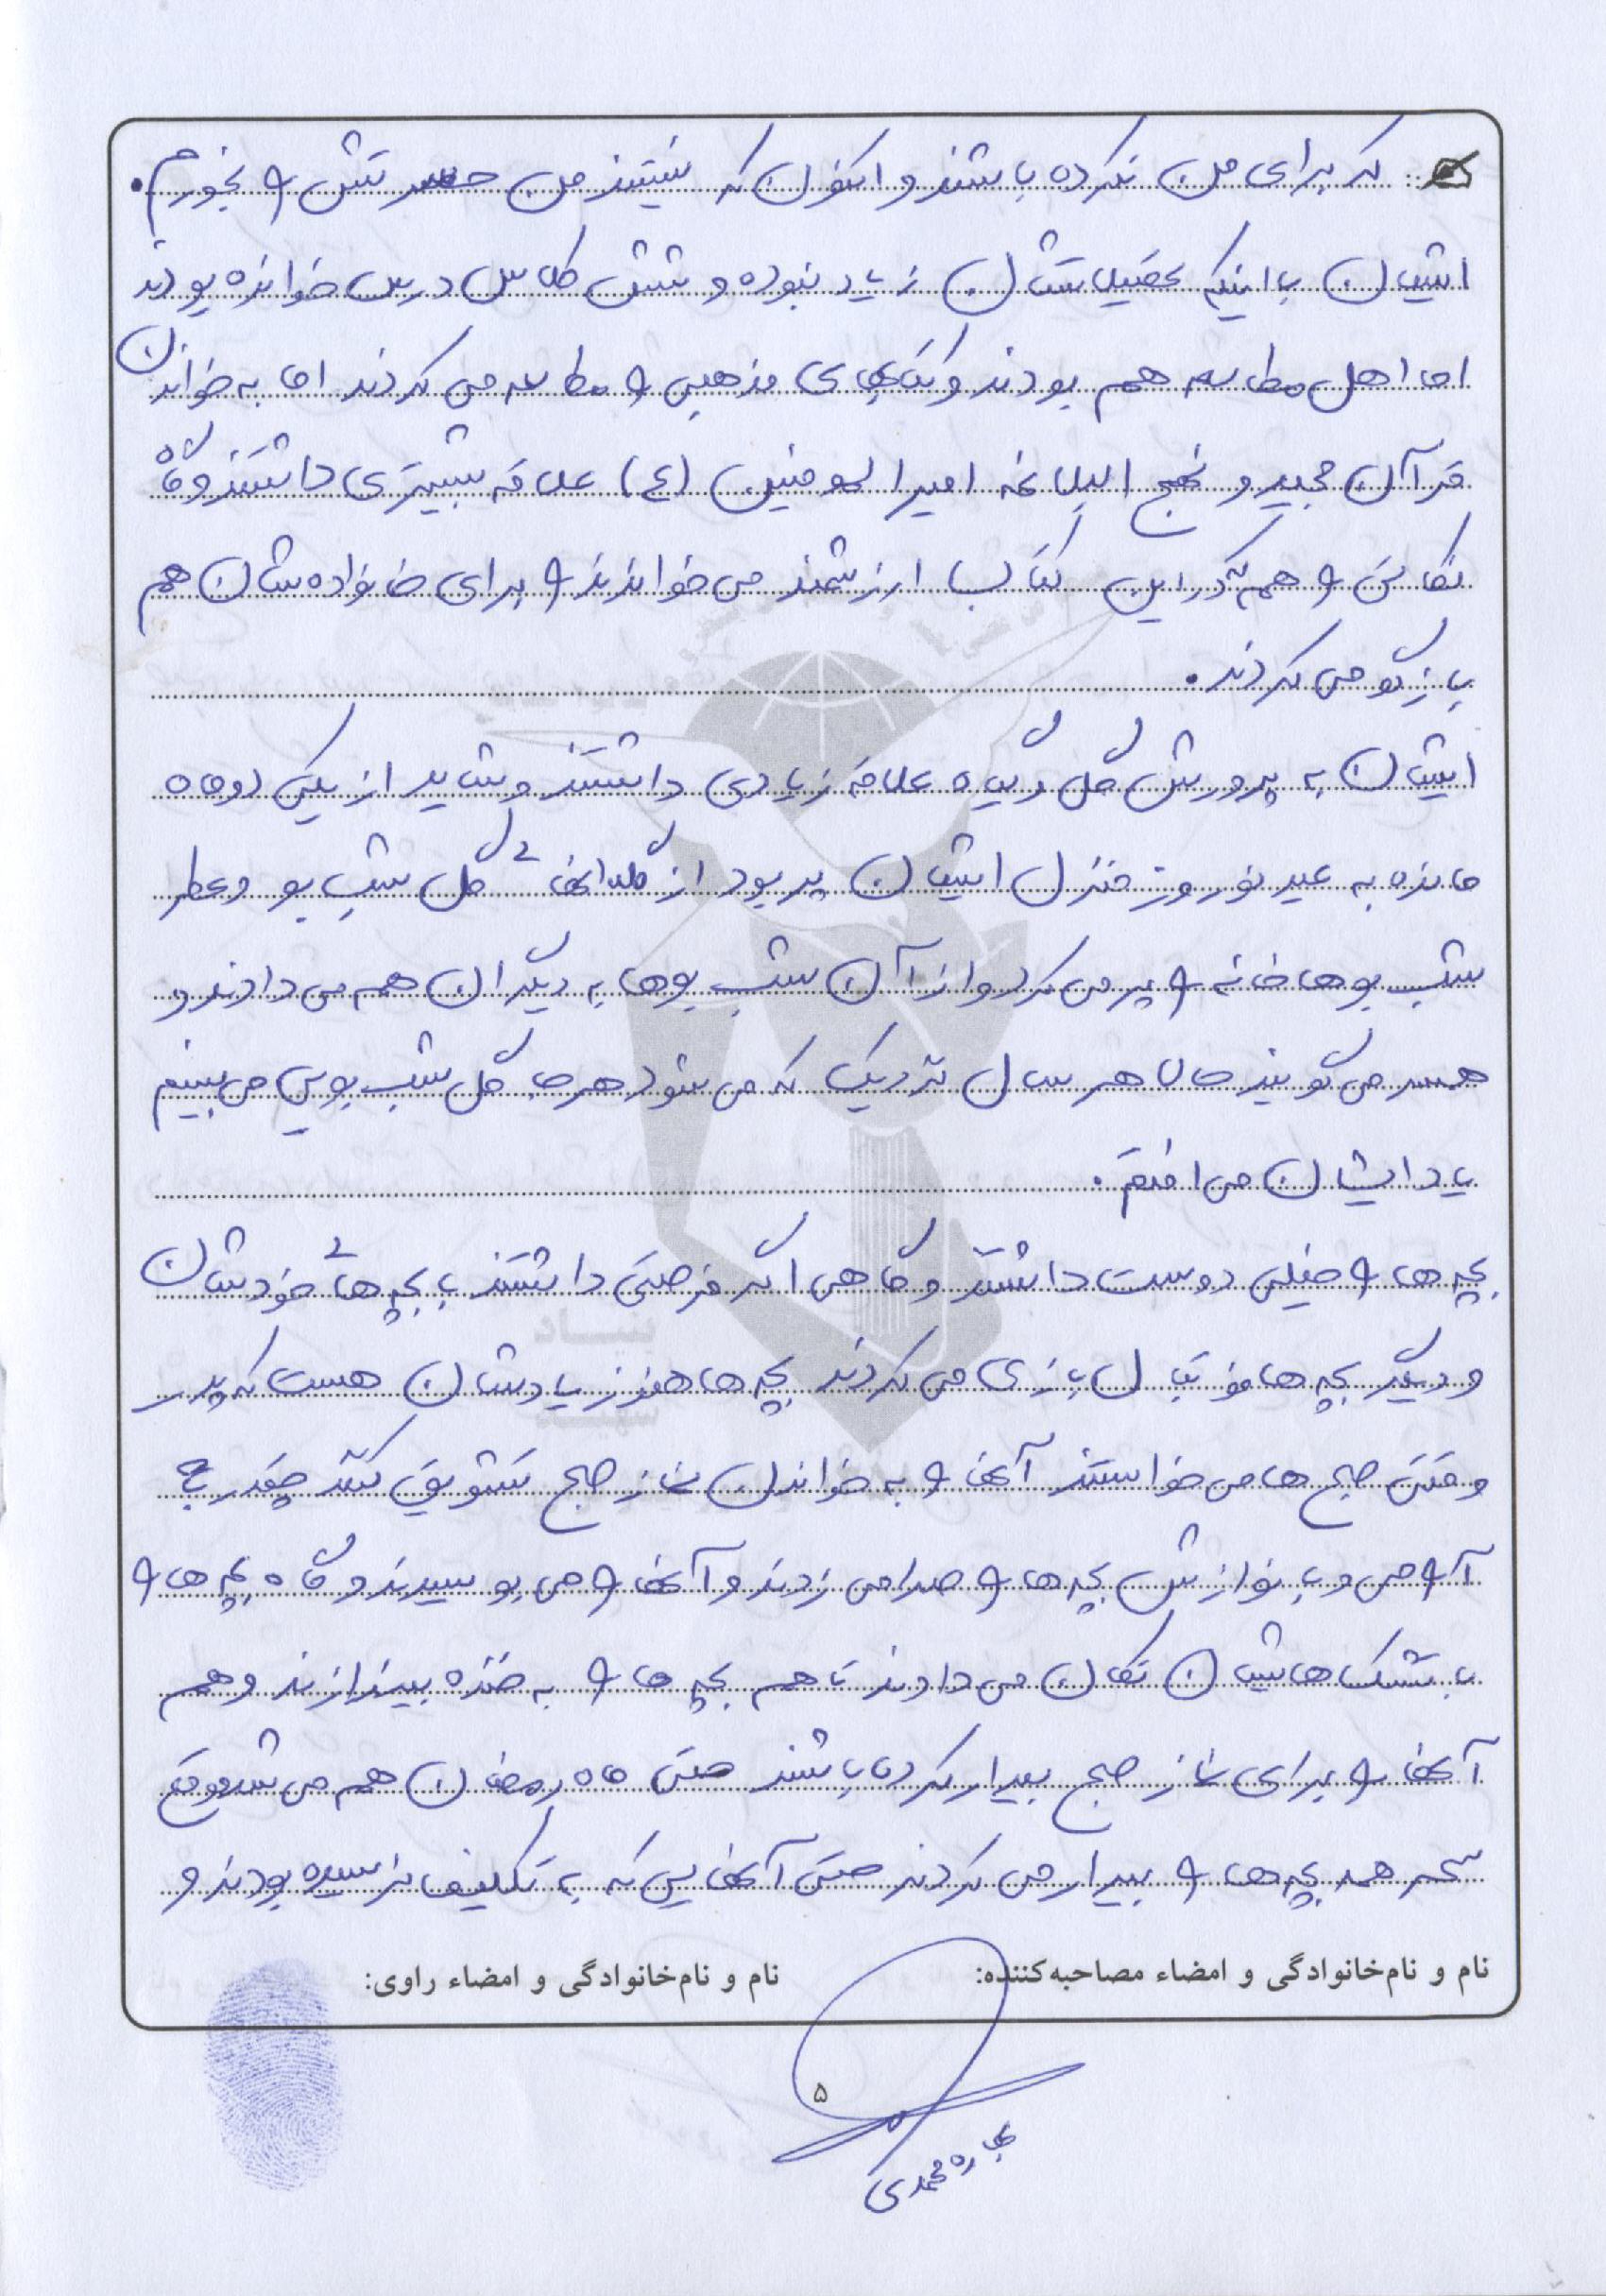 که برای من نکرده باشند و اکنون که نیستند من حسرتش و بخورم.
ایشان با اینکه تحصیلاتشان زیاد نبوده و شش کلاس درس خوانده بودند
اما اهل مطالعه هم بودند و کتابهای مذهبی و مطالعه می کردند اما به خواندن
قرآن مجید و نهج البلاغه امیرالمومنین (ع) علاقه بیشتری داشتند و گاه
نکاتی و هم که در این کتاب با ارزشمند می خواندند و برای خانواده شان هم
بازگو می کردند.
ایشان به پرورش گل و گیاه علاقه زیادی داشتند و شاید از یکی دو ماه
مانده به عید نوروز منزل ایشان پر بود از گلدانهای گل شب بو و عطر
شب بوها خانه و پر می کرد و از آن شب بوها به دیگران هم می دادند و
همسر می گویند حالا هر سال نزدیک که می شود هر جا گل شب بویی می بینم
یاد ایشان می افتم.
بچه ها و خیلی دوست داشتند و گاهی اگر فرصتی داشتند با بچه های خودشان
و دیگر بچه ها فوتبال بازی می کردند بچه ها هنوز یادشان هست که پدر
وقتی صبح ها می خواستند آنها و به خواندن نماز صبح تشویق کنند چقدر به
آرومی و با نوازش بچه ها و صدا می زدند و آنها و می بوسیدند و گاه بچه ها و
با تشک هایشان تکان می دادند تا هم بچه ها و به خنده بیندازند و هم
آنها و برای نماز صبح بیدار کرده باشند حتی ماه رمضان هم می شد موقع
سحر همه بچه ها و بیدار می کردند حتی آنهایی که به تکلیف نرسیده بودند و
نام و نام‌خانوادگی و امضاء مصاحبه‌کننده:
نام و نام‌خانوادگی و امضاء راوی:
۵
محمدی
بنیاد
شهید